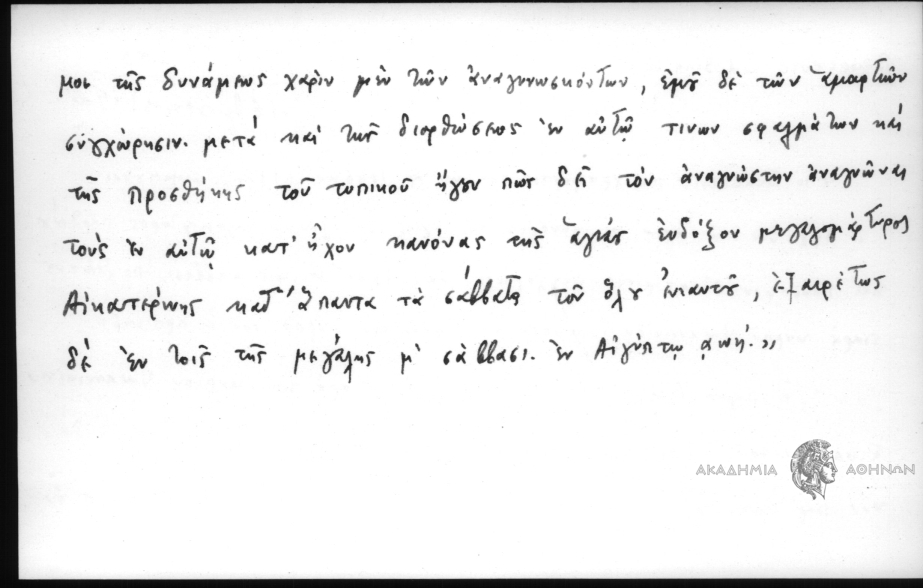 μοι τῆς δυνάμεως χάριν μὲν τῶν ἀναγινωσκόντων, ἐμοῦ δὲ τῶν ἁμαρτιῶν
συγχώρησιν. μετὰ καὶ τῆς διορθώσεως ἐν αὐτῷ τινων σφαλμάτων καὶ
τῆς προσθήκης τοῦ τυπικοῦ ἤγουν πῶς δεῖ τὸν ἀναγνώστην ἀναγνῶναι
τοὺς ἐν αὐτῷ κατ' ἦχον κανόνας τῆς ἁγίας ἐνδόξου μεγαλομάρτυρος
Αἰκατερίνης καθ' ἅπαντα τὰ σάββατα τοῦ ὅλου ἐνιαυτοῦ, ἐξαιρέτως
δὲ ἐν τοῖς τῆς μεγάλης μ' σάββασι. ἐν Αἰγύπτῳ ͵αωη'.»
ΑΚΑΔΗΜΙΑ ΑΘΗΝΩΝ